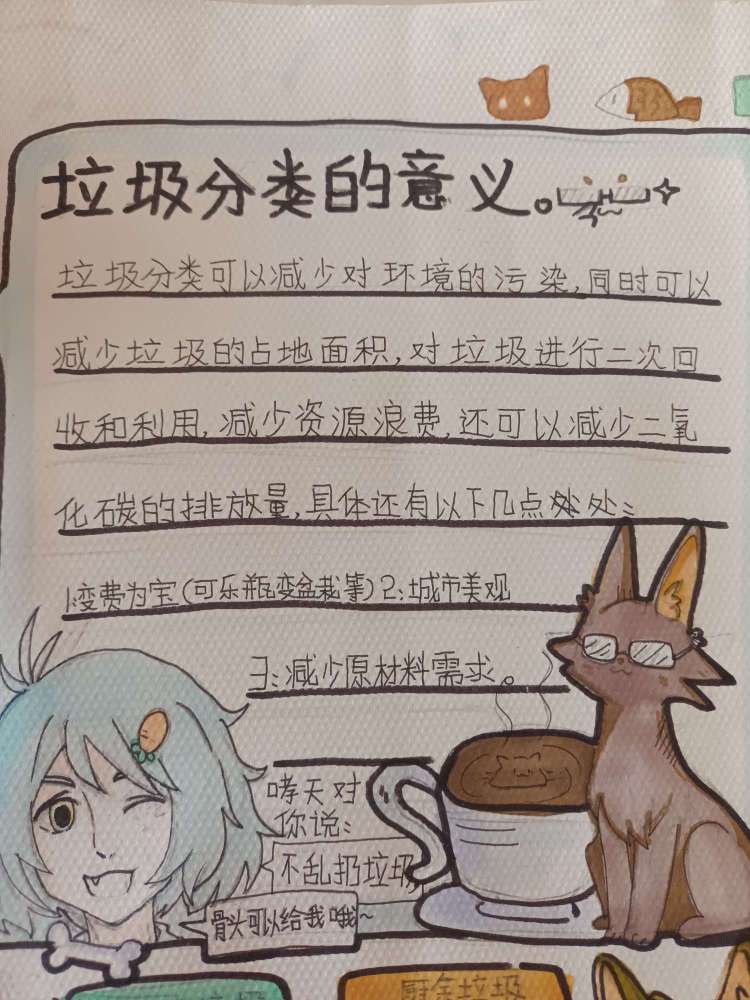 垃圾分类的意义。
垃圾分类可以减少对环境的污染,同时可以
减少垃圾的占地面积,对垃圾进行二次回
收和利用,减少资源浪费,还可以减少二氧
化碳的排放量,具体还有以下几点处:
1:变费为宝(可乐瓶变盆栽等)2:城市美观
3:减少原材料需求。
哮天对
你说:
不乱扔垃圾
骨头可以给我哦~
垃圾
厨余垃圾